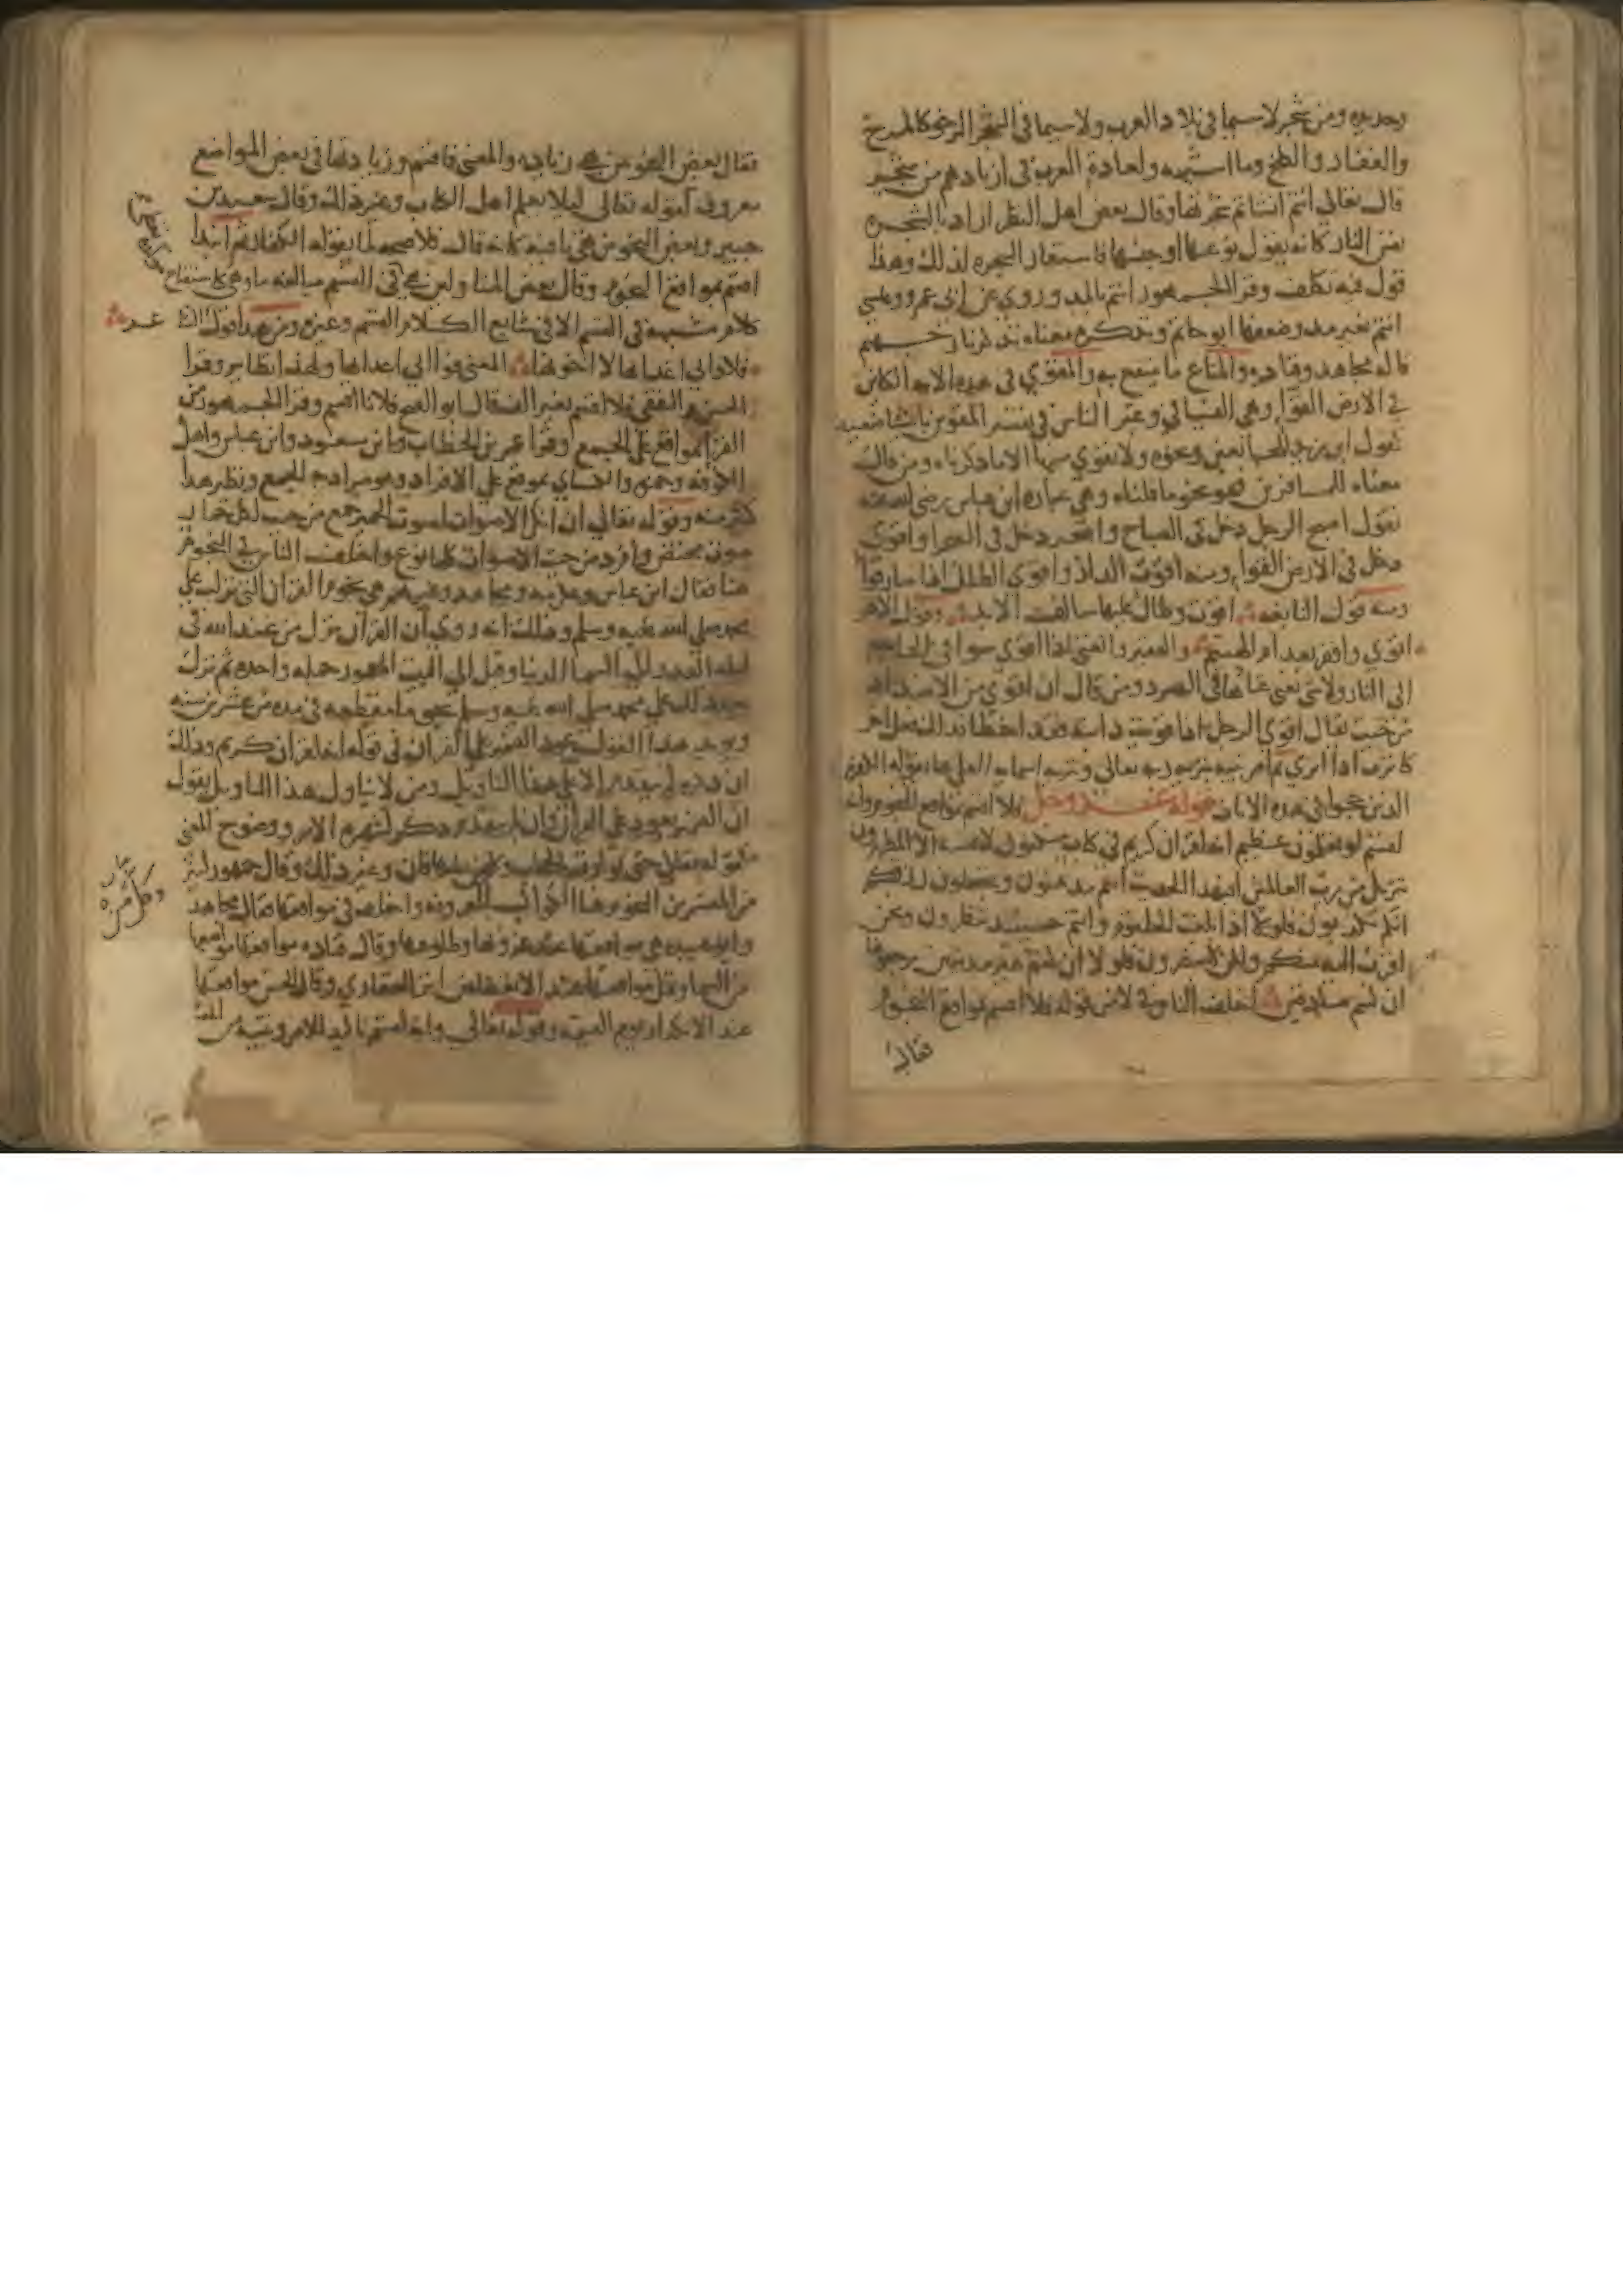 وحديده ومن شجر لاسيما في بلاد العرب ولاسيما في الشجر الرخو كالمرخ
والعفار والكلخ وما اشبهه ولعادة العرب في ازنادهم من شجر
قال تعالى انتم انشاتم شجرتها وقال بعض اهل النظر اراد بالشجره
نفس النار كانه يقول نوعها او جنسها فاستعار الشجره لذلك وهذا
قول فيه تكلف وقرا الجمهور انتم بالمد وروي عن ابي عمرو وعيسى
انتم بغير مد وضعفها ابو حاتم وتذكره معناه تذكر نار جهنم
قاله مجاهد وقتاده والمتاع ما ينتفع به والمقوي في هذه الايه الكائن
في الارض القوا وهي الفيافي وعبر الناس في تفسير المقوين باشيا ضعيفه
كقول ابن زيد الجايعين ونحوه ولا يقوي منها الا ما ذكرناه ومن قال
معناه المسافرين فهو نحو ما قلناه وهي عباره ابن عباس رضي الله عنه
تقول اصبح الرجل دخل في الصباح واصحر دخل في الصحرا واقوى
دخل في الارض القوا ومنه اقوت الدار واقوى الطلل اذا صار قوا
ومنه قول النابغه اقوت وطال عليها سالف الابد وقول الاخر
اقوى واقفر بعد ام الهيثم والفقير والغني اذا اقوى سوا في الحاجه
الى النار ولا شي يغني غناها في الصرد ومن قال ان اقوى من الاضداد
من حيث يقال اقوى الرجل اذا قويت دابته فقد اخطا وذلك فعل اخر
كاترف اذا اثرى ثم امر نبيه بتنزيه ربه تعالى وتنزيه اسمايه العلى عما يقوله الكفره
الذين حجوا في هذه الايات قوله عز وجل فلا اقسم بمواقع النجوم وانه
لقسم لو تعلمون عظيم انه لقران كريم في كتاب مكنون لا يمسه الا المطهرون
تنزيل من رب العالمين افبهذا الحديث انتم مدهنون وتجعلون رزقكم
انكم تكذبون فلولا اذا بلغت الحلقوم وانتم حينئذ تنظرون ونحن
اقرب اليه منكم ولكن لا تبصرون فلولا ان كنتم غير مدينين ترجعونها
ان كنتم صادقين اختلف الناس في لا من قوله فلا اقسم بمواقع النجوم
فقال
فقال بعض النحويين هي زيادة والمعنى فاقسم وزيادتها في بعض المواضع
معروف كقوله تعالى ليلا يعلم اهل الكتاب وغير ذلك وقال سعيد بن
جبير وبعض النحويين هي نافية كانه قال فلا صحه لما يقوله الكفار ثم ابتدا
اقسم بمواقع النجوم وقال بعض المتاولين هي في القسم مبالغه ما وهي كاستفتاح
كلام مشبهه في القسم الا في شايع الكلام القسم وغيره ومن هذا قول
فلا وابي اعدايها لا اخونها المعنى فوابي اعدايها ولهذا نظاير وقرا
الحسن والثقفي فلاقسم بغير الف قال ابو الفتح فلانا اقسم وقرا الجمهور من
القرا بمواقع على الجمع وقرا عمر بن الخطاب وابن مسعود وابن عباس واهل
الكوفه وحمزه والكساي بموقع على الافراد وهو مراد به الجمع ونظير هذا
كثير منه وقوله تعالى ان انكر الاصوات لصوت الحمير جمع من حيث لكل حمار
صوت مختص وافرد من حيث الاصوات كلها نوع واختلف الناس في النجوم
هنا فقال ابن عباس وعكرمه ومجاهد وغيرهم هي نجوم القران التي نزلت على
محمد صلى الله عليه وسلم وذلك انه روي ان القران نزل من عند الله في
ليله القدر الى السما الدنيا وقيل الى البيت المعمور جمله واحده ثم نزل
بعد ذلك على محمد صلى الله عليه وسلم نجوما مقطعه في مده من عشرين سنه
ويويد هذا القول عود الضمير على القران في قوله انه لقران كريم وذلك
ان ذكره لم يتقدم الا على هذا التاويل ومن لا يتاول هذا التاويل يقول
ان الضمير يعود على القران وان لم يتقدم ذكر لشهره الامر ووضوح المعنى
كقوله تعالى حتى توارت بالحجاب وكل من عليها فان وغير ذلك وقال جمهور كثير
من المفسرين النجوم هنا الكواكب المعروفه واختلف في مواقعها فقال مجاهد
وابو عبيده هي مواقعها عند غروبها وطلوعها وقال قتاده مواقعها مواضعها
من السما وقيل مواقعها عند الانقضاض اثر العفاريت وقال الحسن مواقعها
عند الانكدار يوم القيمه وقوله تعالى وانه لقسم تاكيد للامر وتنبيه من